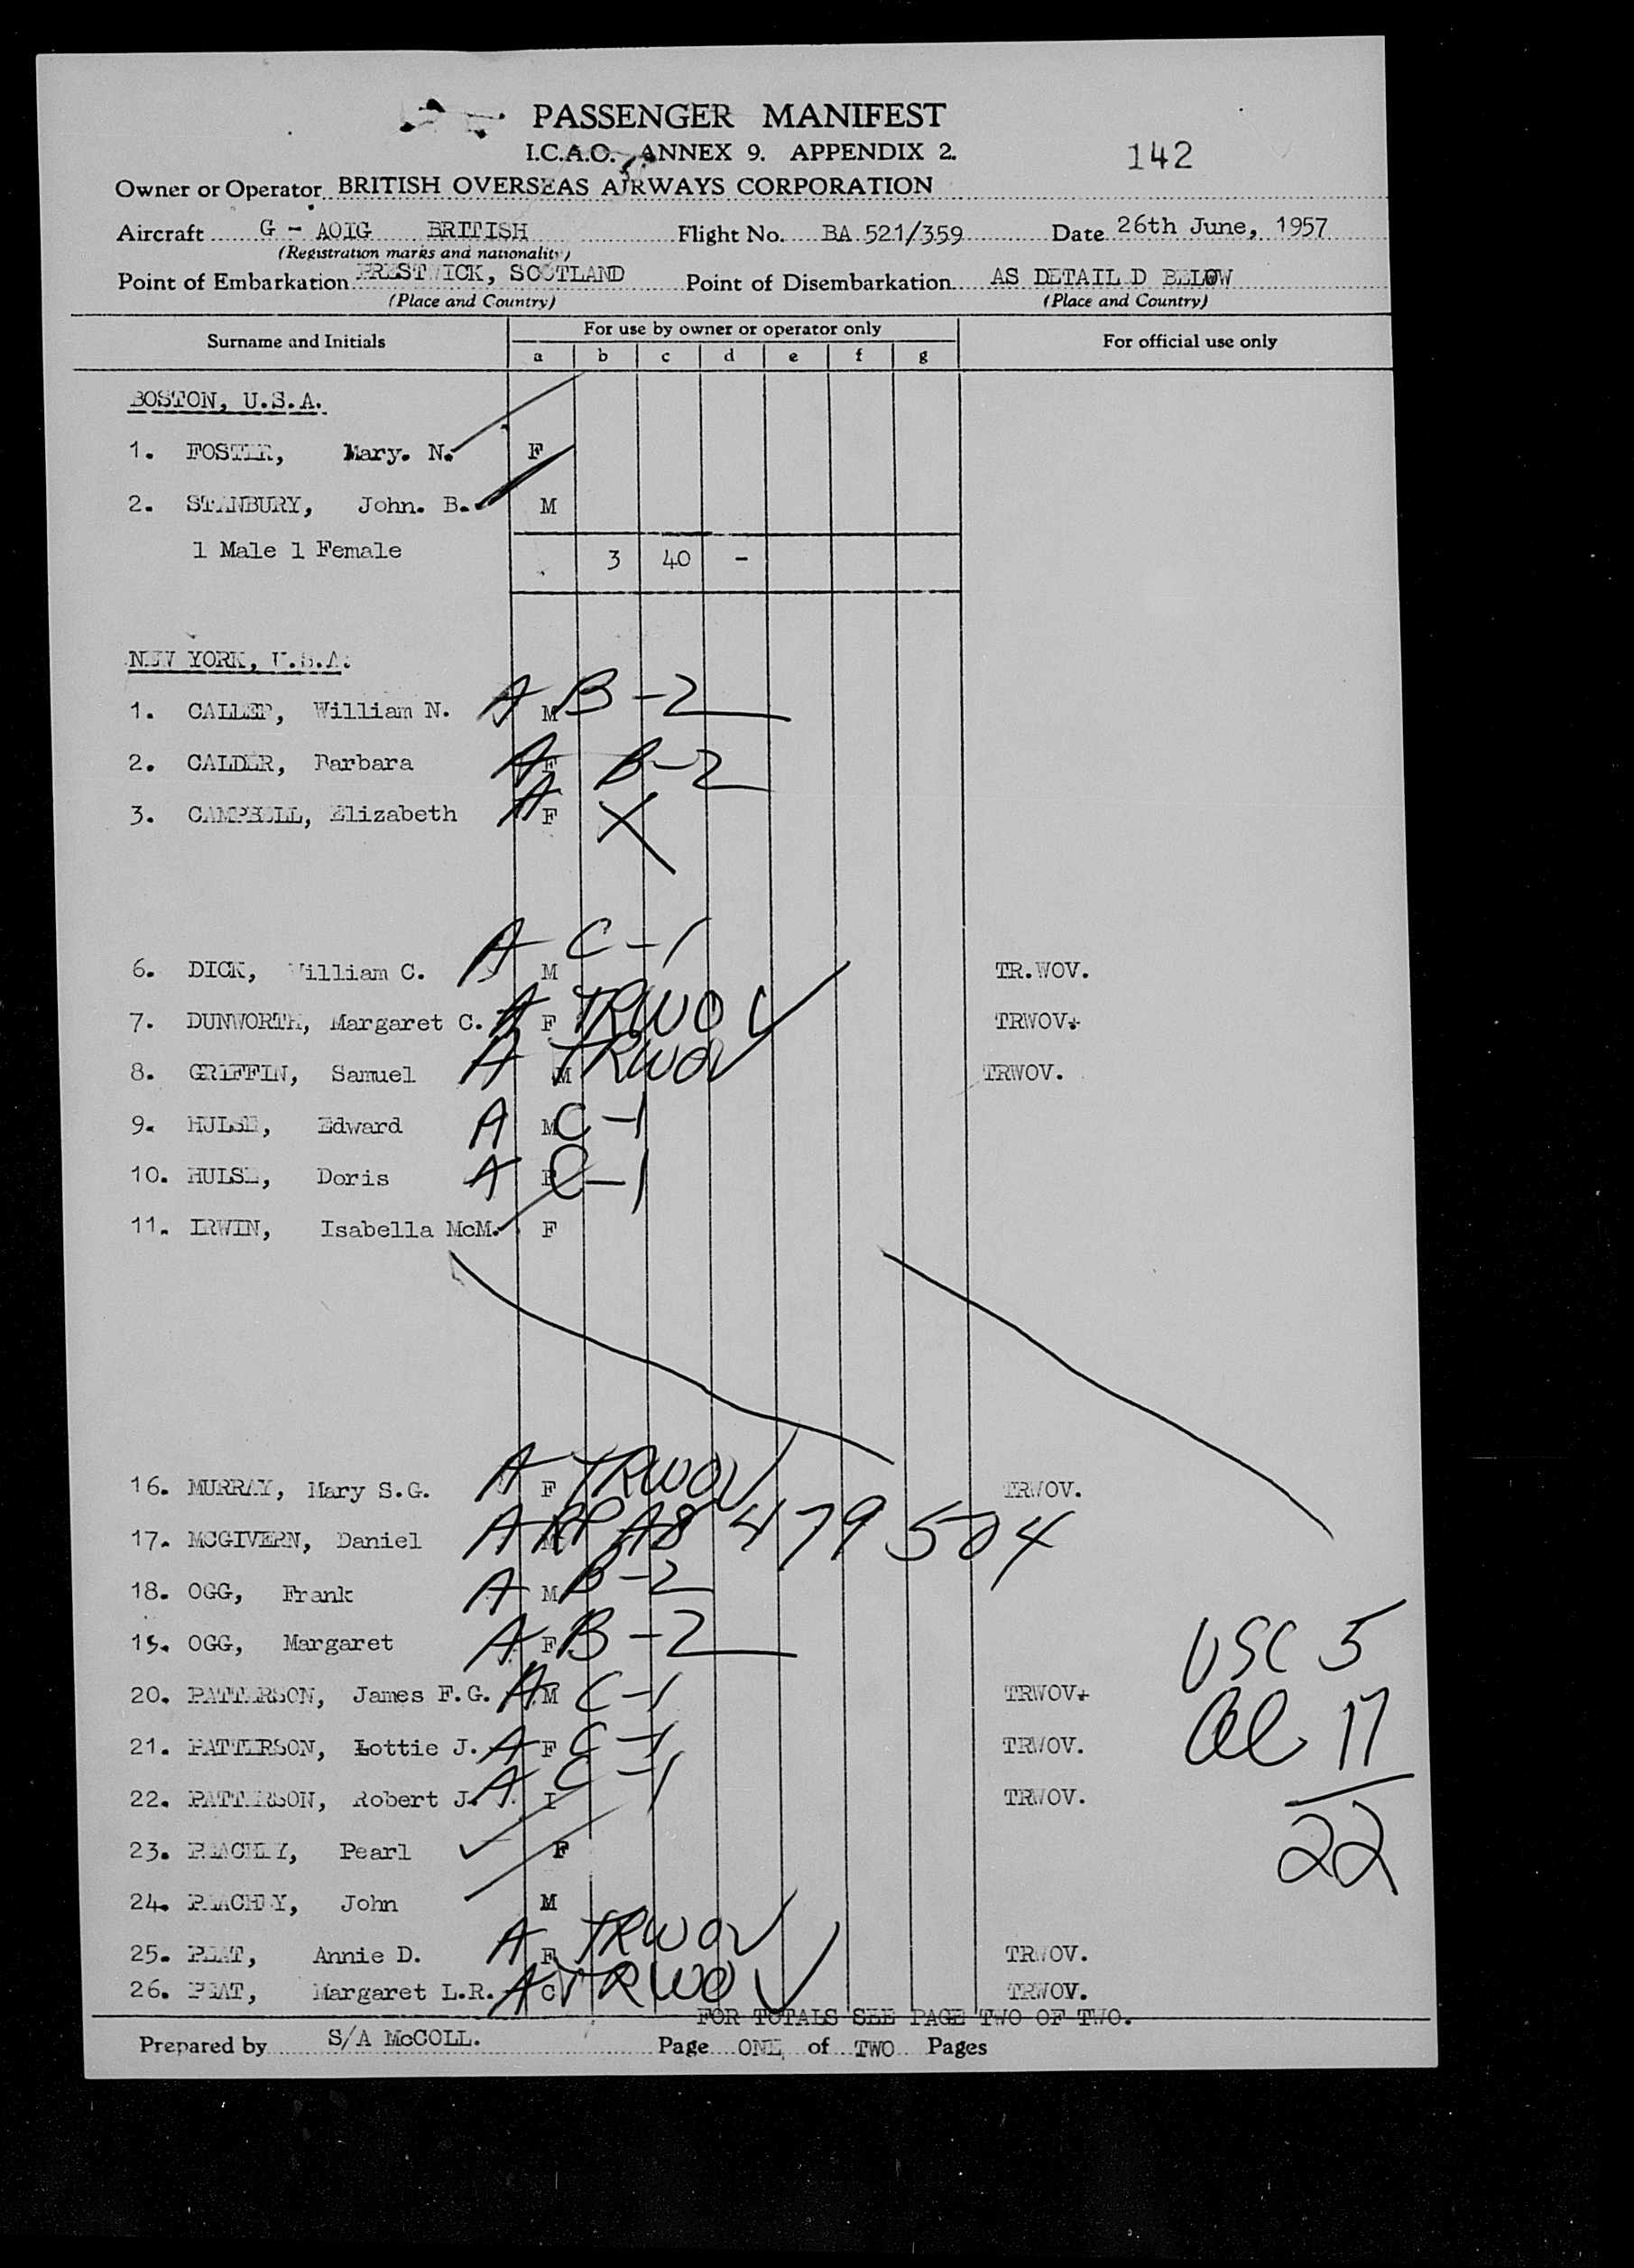 PASSENGER MANIFEST
I.C.A.O. ANNEX 9. APPENDIX 2.
142
Owner or Operator BRITISH OVERSEAS AIRWAYS CORPORATION
Aircraft G - AOIG BRITISH Flight No. BA 521/359 Date 26th June, 1957
(Registration marks and nationality)
Point of Embarkation PRESTWICK, SCOTLAND Point of Disembarkation AS DETAIL D BELOW
(Place and Country) (Place and Country)
Surname and Initials For use by owner or operator only For official use only
a b c d e f g
BOSTON, U.S.A.
1. FOSTER, Mary. N. F
2. STANBURY, John. B. M
1 Male 1 Female 3 40 -
NEW YORK, U.S.A.
1. William N. A M B-2
2. CALDER, Barbara A F B-2
3. CAMPBELL, Elizabeth A F X
6. DICK, William C. A M C-1 TR.WOV.
7. DUNWORTH, Margaret C. A F TRWOV TRWOV.
8. GRIFFIN, Samuel A M TRWOV TRWOV.
9. HULSE, Edward A M C-1
10. HULSE, Doris A F C-1
11. IRWIN, Isabella McM. F
16. MURRAY, Mary S.G. A F TRWOV TRWOV.
17. MCGIVERN, Daniel A M A8 479 504
18. OGG, Frank A M B-2
19. OGG, Margaret A F B-2
USC 5
20. PATTERSON, James F.G. A M C-1 TRWOV.
Al 17
21. PATTERSON, Lottie J. A F C-1 TRWOV.
22. PATTERSON, Robert J. A I C-1 TRWOV.
22
23. PEACHEY, Pearl F
24. PEACHEY, John M
25. PEAT, Annie D. A F TRWOV TRWOV.
26. PEAT, Margaret L.R. A C TRWOV TRWOV.
FOR TOTALS SEE PAGE TWO OF TWO.
Prepared by S/A McCOLL. Page ONE of TWO Pages